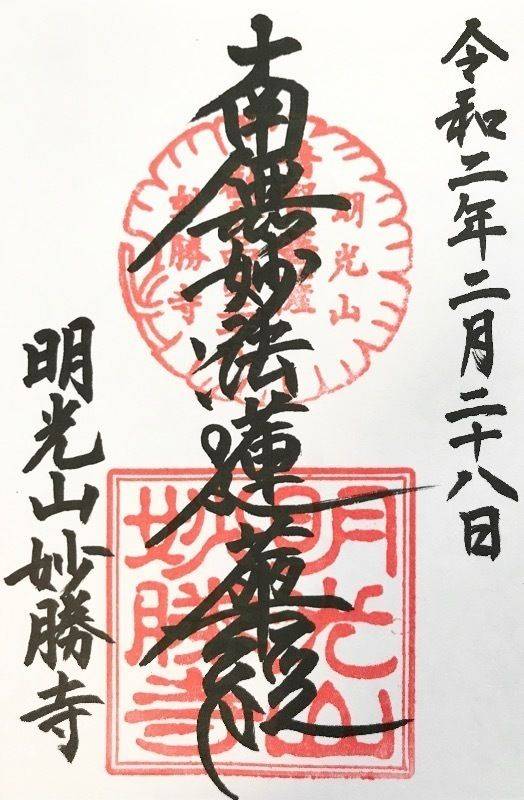 令和二年二月二十八日
南無妙法蓮華経
明光山妙勝寺
明光山
妙勝寺
明光山
妙勝寺